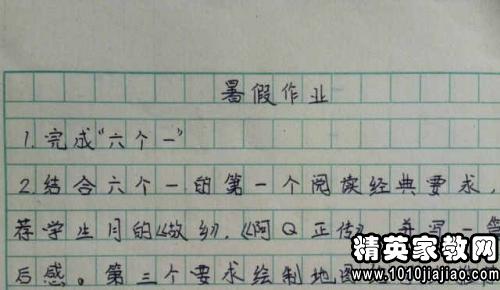 暑假作业
1.完成“六个一”
2.结合六个一的第一个阅读经典要求,
荐学生月的《故乡》,《阿Q正传》 并写一
后感。第三个要求绘制地图
精英家教网
www.1010jiajiao.com